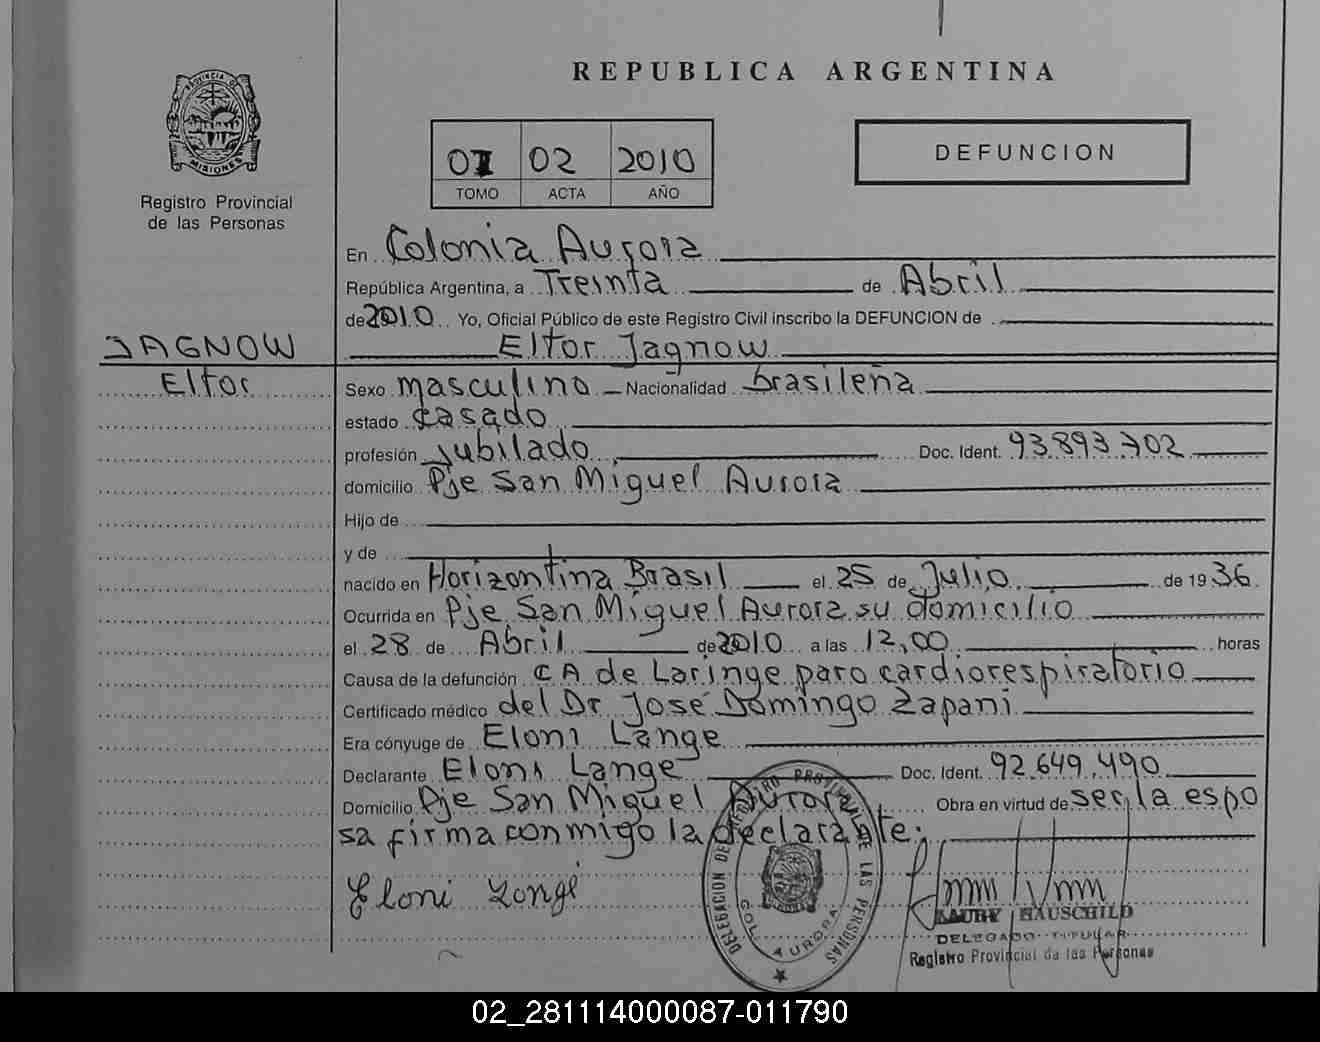 REPUBLICA ARGENTINA
PROVINCIA DE
MISIONES
Registro Provincial
de las Personas
01 02 2010
TOMO ACTA AÑO
DEFUNCION
En Colonia Aurora
República Argentina, a Treinta de Abril
de 2010 Yo, Oficial Público de este Registro Civil inscribo la DEFUNCION de
JAGNOW Eltor Jagnow
Eltor Sexo masculino Nacionalidad brasileña
estado casado
profesión jubilado Doc. Ident. 93.893.702
domicilio Pje San Miguel Aurora
Hijo de
y de
nacido en Horizontina Brasil el 25 de Julio de 1936
Ocurrida en Pje San Miguel Aurora su domicilio
el 28 de Abril de 2010 a las 12,00 horas
Causa de la defunción CA de Laringe paro cardiorespiratorio
Certificado médico del Dr José Domingo Zapani
Era cónyuge de Eloni Lange
Declarante Eloni Lange Doc. Ident. 92.649.490
Domicilio Pje San Miguel Aurora Obra en virtud de ser la espo
sa firma conmigo la declarante.
Eloni Lange
DELEGACION DEL REGISTRO PROVINCIAL DE LAS PERSONAS
COL. AURORA
HAUSCHILD
DELEGADO TITULAR
Registro Provincial de las Personas
02_281114000087-011790